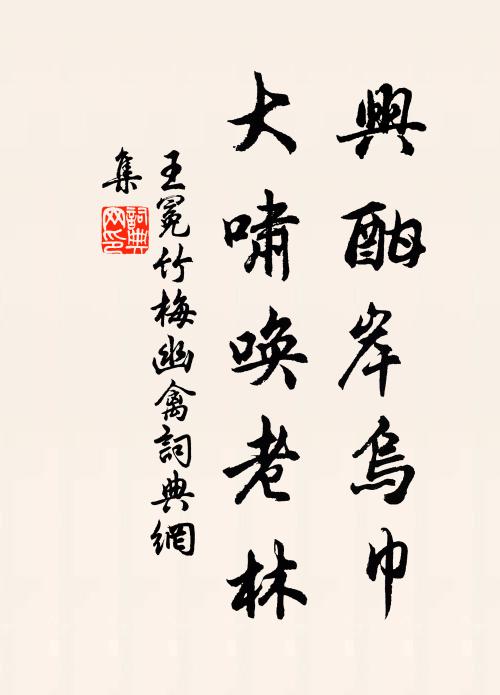 興酣岸烏巾
大嘯喚老林
王冕竹梅幽禽詞典網
集
詞典网印